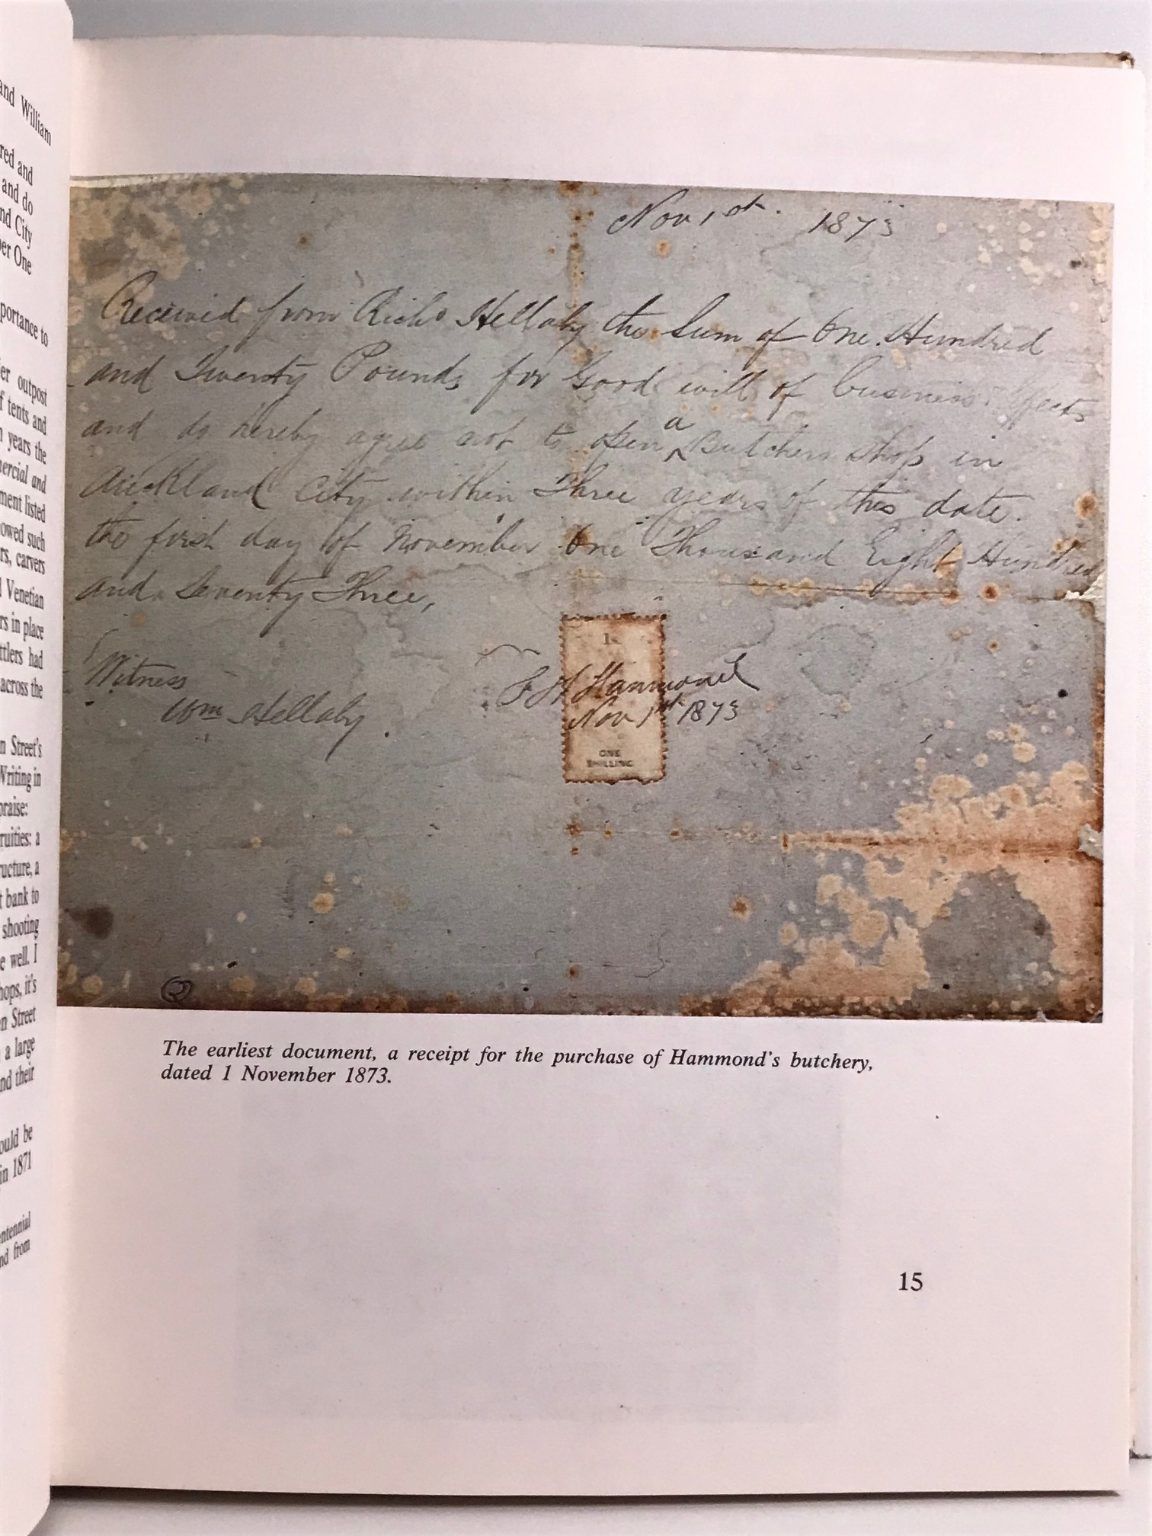 and William
red and
and do
nd City
er One
portance to
er outpost
f tents and
n years the
ercial and
ment listed
owed such
rs, carvers
Venetian
rs in place
ttlers had
across the
n Street's
Writing in
praise:
ruities: a
ructure, a
t bank to
shooting
e well. I
hops, it's
n Street
a large
nd their
ould be
in 1871
entennial
nd from
Nov 1st. 1873
Received from Richd Hellaby the Sum of One Hundred
and Twenty Pounds for Good will of business
and do hereby agree not to open a Butchers Shop in
Auckland City within Three years of this date.
the first day of November One Thousand Eight Hundred
and Seventy Three,
Witness
Wm Hellaby.
Hammond
Nov 1st 1873
ONE
SHILLING
2
The earliest document, a receipt for the purchase of Hammond's butchery,
dated 1 November 1873.
15